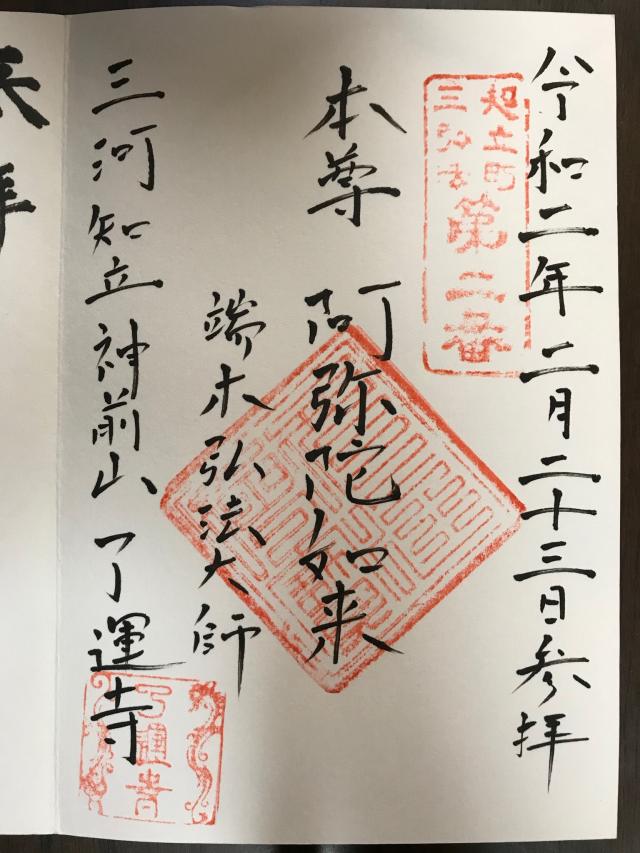 令和二年二月二十三日参拝
知立町
三弘法
第二番
本尊 阿弥陀如来
端木弘法大師
三河知立神前山 了運寺
了運寺
拝